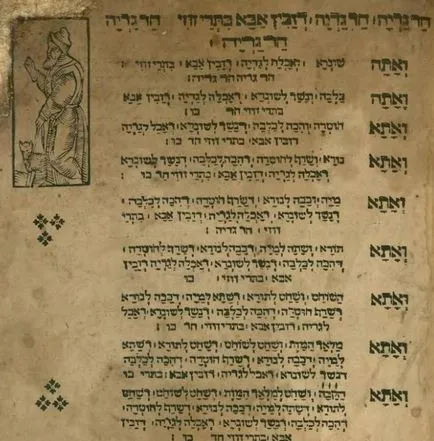 חד גדיה׳ חד גדיה׳ דזבין אבא בתרי זוזי׳ חד גדיה׳
חד גדיה׳
ואתא שונרא ואכלה לגדיה׳ דזבין אבא׳ בתרי זוזי׳
חד גדיה חד גדיה׳
ואתא כלבה׳ ונשך לשונרא׳ דאכלה לגדיה׳ דזבין אבא
בתרי זוזי חד כו׳
ואתא חוטרה׳ והכה לכלבה׳ דנשך לשונרא׳ דאכל לגדיה
דזבין אבא׳ בתרי זוזי חד כו׳
ואתא נורא׳ ושרף לחוטרה׳ דהכה לכלבה׳ דנשך לשונרא׳
דאכלה לגדיה׳ דזבין אבא׳ בתרי זוזי חד כו׳
ואתא מיה׳ וכבה לנורא׳ דשרף חוטרה׳ דהכה לכלבה׳
דנשך לשונרא׳ דאכלה לגדיה׳ דזבין אבא׳ בתרי
זוזי׳ חד גדיה׳
ואתא תורא׳ ושתה למיה׳ דכבה לנורא׳ דשרף לחוטרה׳
דהכה לכלבה׳ דנשך לשונרא׳ דאכלה לגדיה דזבין
אבא׳ בתרי זוזי׳ כו׳
ואתא השוחט׳ ושחט לתורא׳ דשתא למיה׳ דכבה לנורא׳
דשרף חוטרה׳ דהכה לכלבה׳ דנשך לשונרא׳ דאכל
לגדיה׳ דזבין אבא׳ בתרי זוזי׳ חד כו׳
ואתא מלאך המות׳ ושחט לשוחט׳ דשחט לתורא׳ דשתא
למיה׳ דכבה לנורא׳ דשרף חוטרה׳ דהכה לכלבה
דנשך לשונרא׳ דאכל לגדיה׳ דזבין אבא׳ בתרי כו׳
ואתא הקבה׳ ושחט למלאך המות׳ דשחט לשוחט׳ דשחט
לתורא׳ דשתה למיה׳ דכבה לנורא׳ דשרף לחוטרה׳
דהכה לכלבה׳ דנשך לשונרא׳ דאכלה לגדיה׳ דזבין
אבא׳ בתרי זוזי חד כו׳